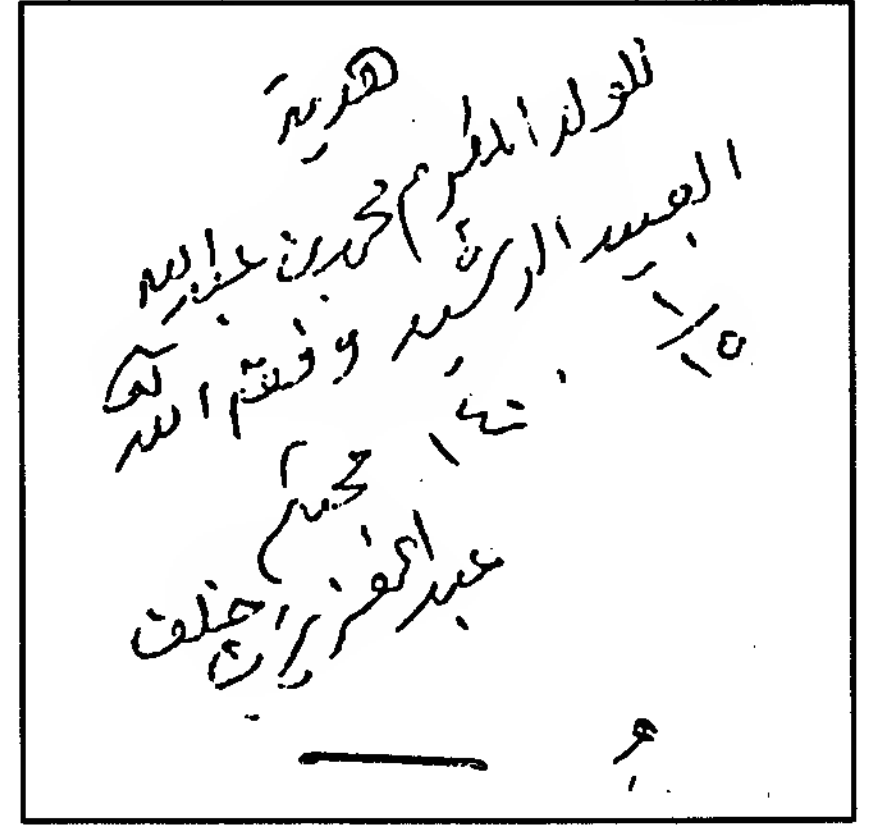 هدية
للولد المكرم محمد بن عبدالله
العبيد الرشيد وفقهم الله
١/٥
١٤٠٠
محبكم
عبدالعزيز بن خلف